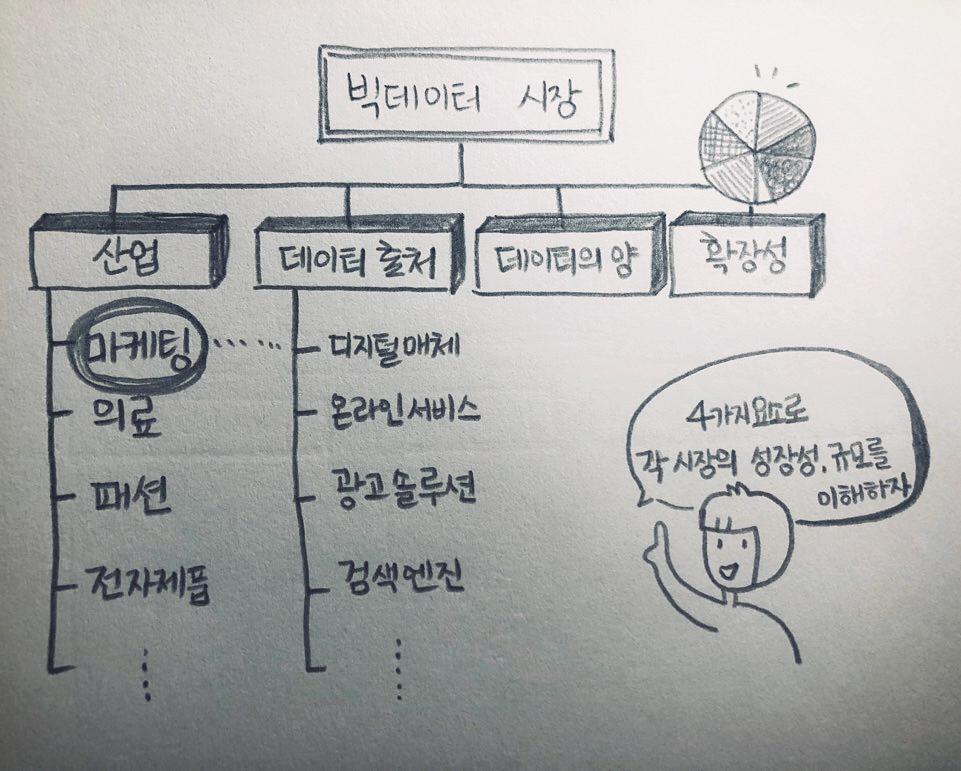 빅데이터 시장
산업
데이터 출처
데이터의 양
확장성
마케팅
의료
패션
전자제품
디지털매체
온라인서비스
광고솔루션
검색엔진
4가지요소로
각 시장의 성장성, 규모를
이해하자